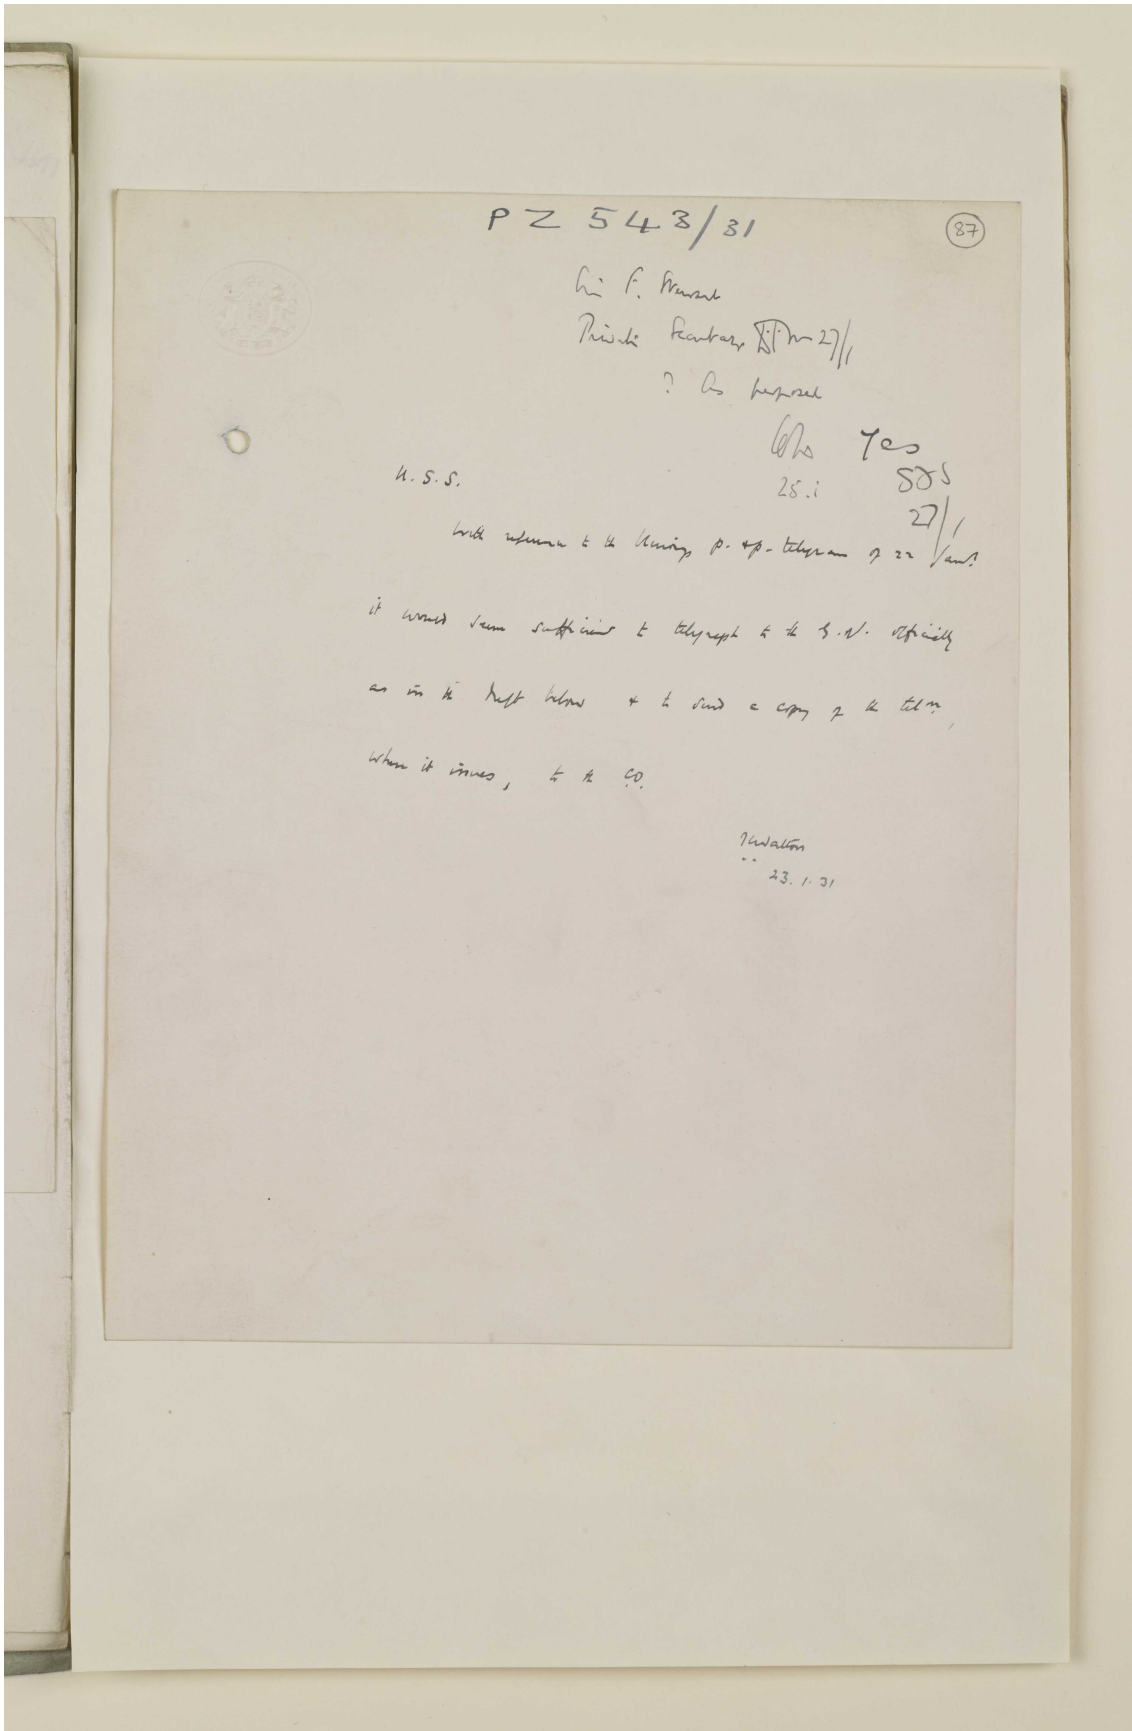 PZ 543/31
87
Sir F. Stewart
Private Secretary 27/1
? As proposed
Yes
25.i
27/1
U.S.S.
With reference to the Viceroy's p. & p. telegram of 22 Jany.
it would seem sufficient to telegraph to the G. of I. officially
as in the draft below & to send a copy of the telm,
when it issues, to the C.O.
JCWalton
23.1.31